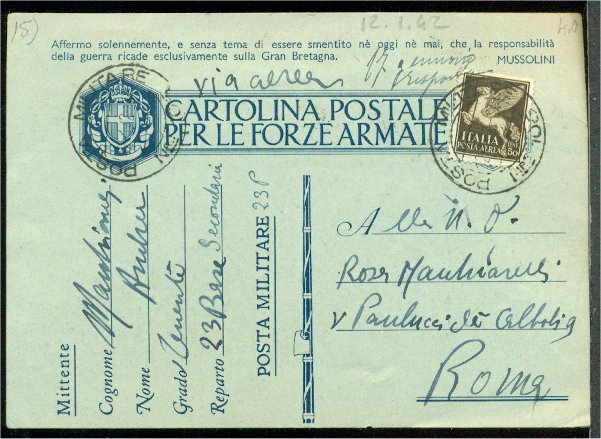 15)
12.1.42
Affermo solennemente, e senza tema di essere smentito nè oggi nè mai, che la responsabilità
della guerra ricade esclusivamente sulla Gran Bretagna.
MUSSOLINI
via aerea
CARTOLINA POSTALE
PER LE FORZE ARMATE
POSTA MILITARE
ITALIA
POSTA AEREA
CENT. 50
POSTA MILITARE
Mittente
Cognome
Nome Andrea
Grado Tenente
Reparto 23 Base Secondaria
POSTA MILITARE 23 P
Alla N. D.
Rosa
v Paulucci de Calboli 9
Roma